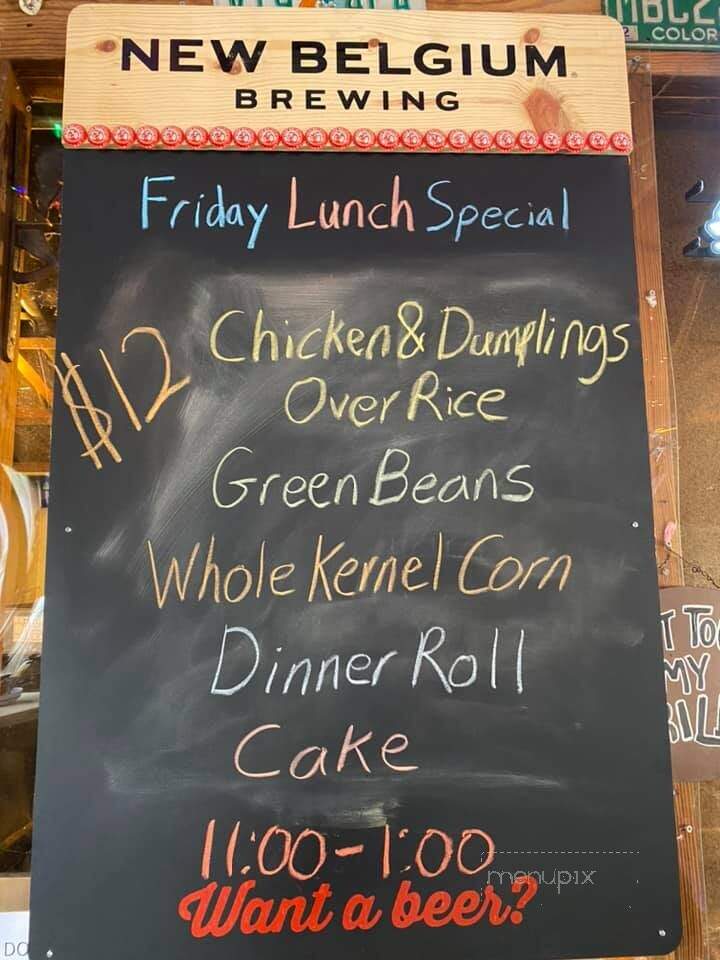 NEW BELGIUM
BREWING
Friday Lunch Special
$12
Chicken & Dumplings
Over Rice
Green Beans
Whole Kernel Corn
Dinner Roll
Cake
11:00-1:00
Want a beer?
menupix
COLOR
MY
DO